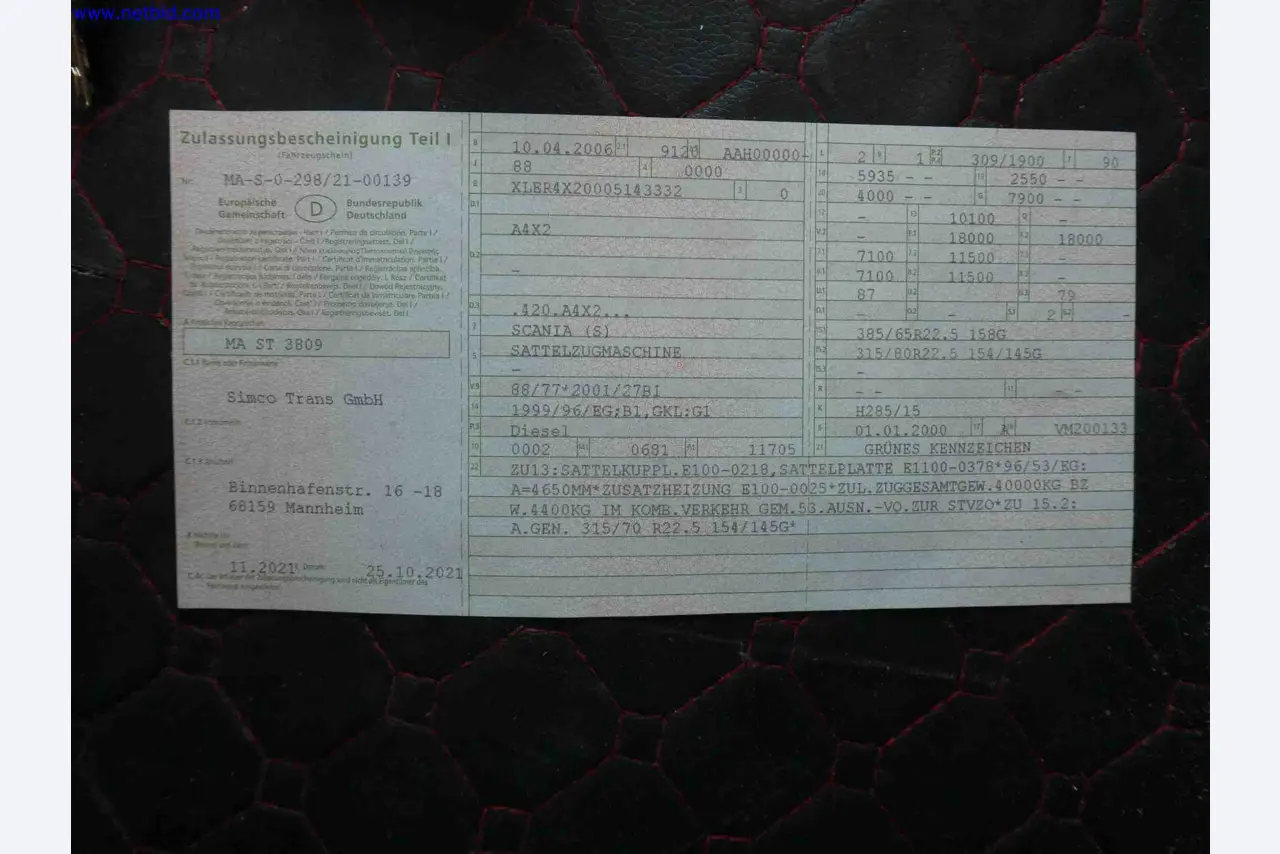 www.netbid.com
Zulassungsbescheinigung Teil I
(Fahrzeugschein)
Nr. MA-S-0-298/21-00139
Europäische Gemeinschaft
D
Bundesrepublik Deutschland
MA ST 3809
C.1.1
Simco Trans GmbH
C.1.2
C.1.3
Binnenhafenstr. 16 -18
68159 Mannheim
11.2021 Datum 25.10.2021
B 10.04.2006 2.1 9120 AAH00000-
J 88 4 0000
E XLER4X20005143332 3 0
D.1
A4X2
D.2
-
D.3 .420.A4X2...
2 SCANIA (S)
5 SATTELZUGMASCHINE
-
V.9 88/77*2001/27B1
14 1999/96/EG;B1,GKL:G1
P.3 Diesel
10 0002 14.1 0681 P.1 11705
22 ZU13:SATTELKUPPL.E100-0218,SATTELPLATTE E1100-0378*96/53/EG:
A=4650MM*ZUSATZHEIZUNG E100-0025*ZUL.ZUGGESAMTGEW.40000KG BZ
W.4400KG IM KOMB.VERKEHR GEM.53.AUSN.-VO.ZUR STVZO*ZU 15.2:
A.GEN. 315/70 R22.5 154/145G*
L 2 9 1 P.2 P.4 309/1900 T 90
18 5935 - - 19 2550 - -
20 4000 - - G 7900 - -
12 - 13 10100 Q -
V.7 - F.1 18000 F.2 18000
7.1 7100 7.2 11500 7.3
8.1 7100 8.2 11500 8.3
U.1 87 U.2 U.3 79
O.1 - O.2 - S.1 2 S.2 -
15.1 385/65R22.5 158G
15.2 315/80R22.5 154/145G
15.3 -
R - - 11 - -
K H285/15
6 01.01.2000 17 K 16 VM200133
21 GRÜNES KENNZEICHEN